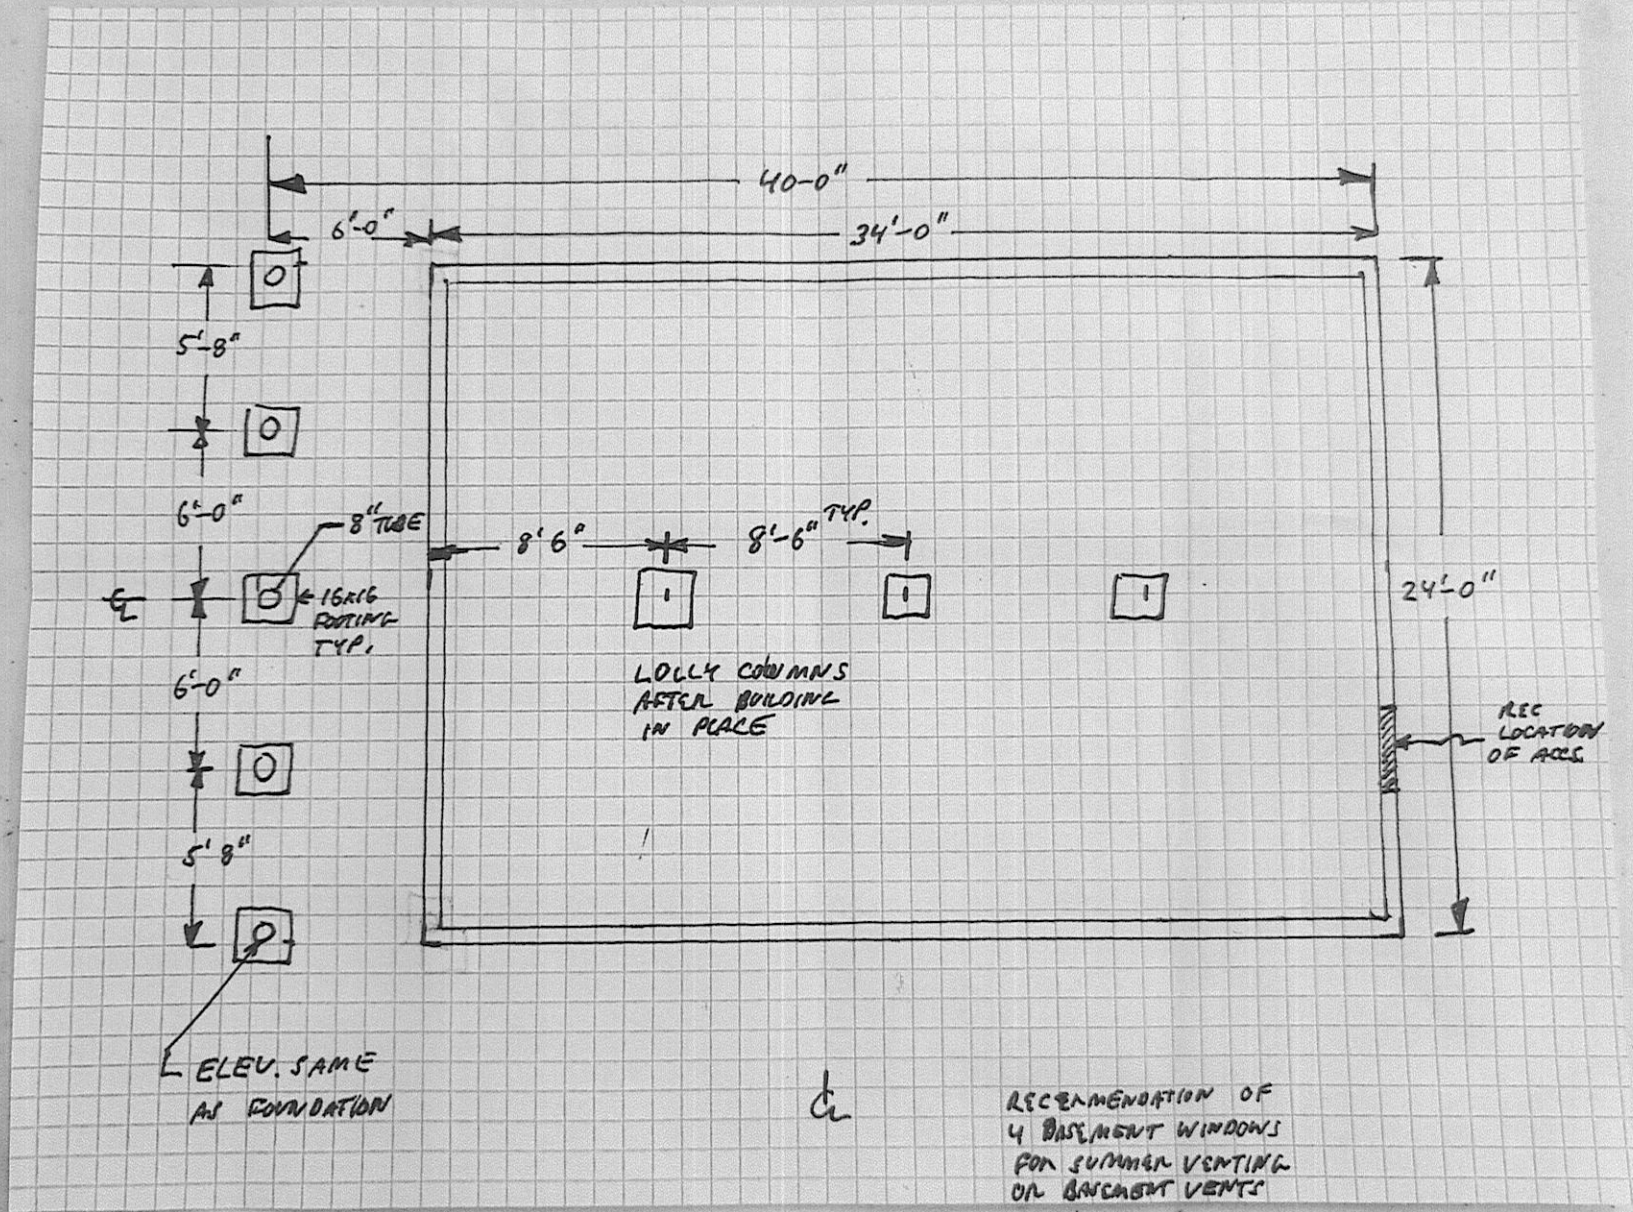 40-0"
6'-0"
34'-0"
5'-8"
6'-0"
8" TUBE
8'6"
8'-6" TYP.
℄
16x16
FOOTING
TYP.
24'-0"
6'-0"
LOLLY COLUMNS
AFTER BUILDING
IN PLACE
REC
LOCATION
OF ACCS.
5'8"
ELEV. SAME
AS FOUNDATION
℄
RECEMMENDATION OF
4 BASEMENT WINDOWS
FOR SUMMER VENTING
OR BASEMENT VENTS